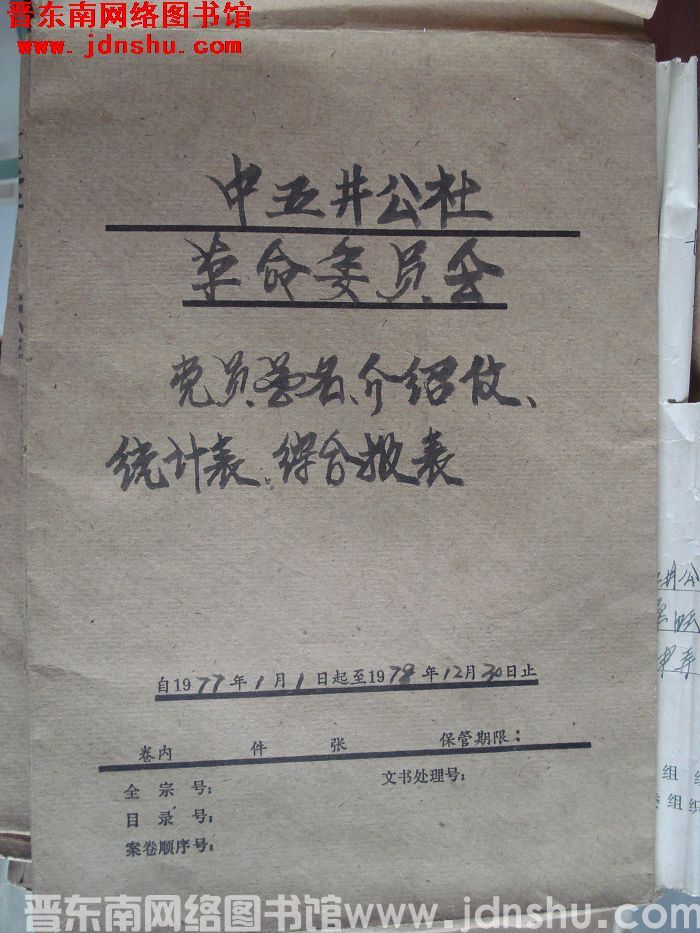 晋东南网络图书馆
www.jdnshu.com
中五井公社
革命委员会
党员党名、介绍信、
统计表、综合报表
自1977年1月1日起至1978年12月30日止
卷内 件 张 保管期限：
全宗号： 文书处理号：
目录号：
案卷顺序号：
井公
组
组织
晋东南网络图书馆www.jdnshu.com